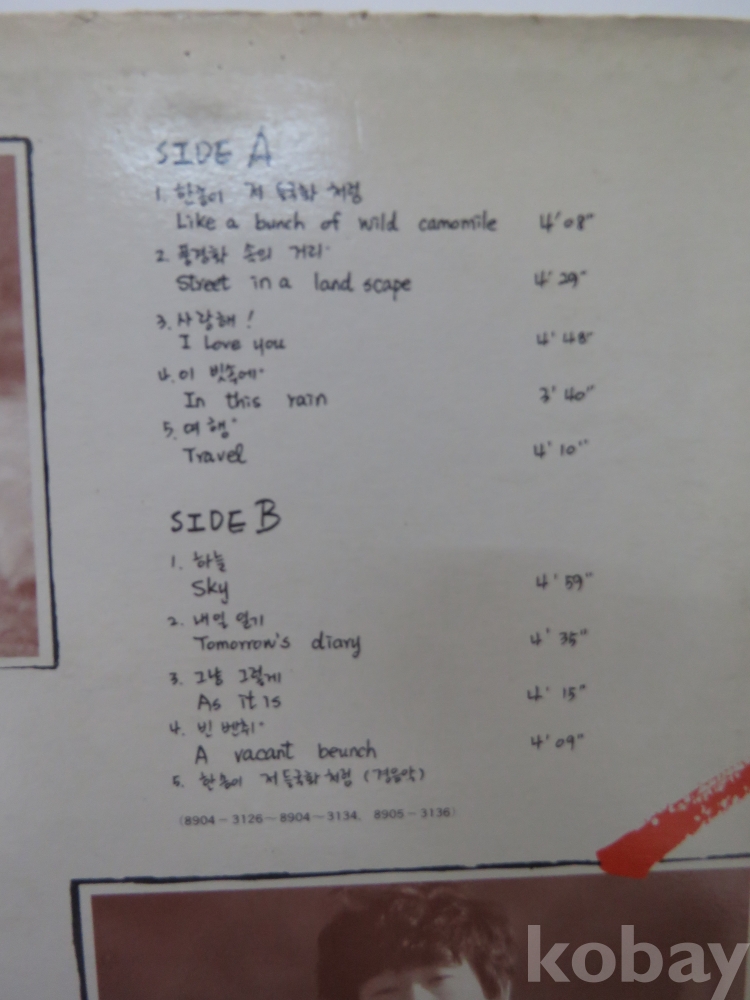 SIDE A
1. 한송이 저 들국화 처럼
Like a bunch of wild camomile 4'08"
2. 풍경화 속의 거리
Street in a land scape 4'29"
3. 사랑해!
I love you 4'48"
4. 이 빗속에
In this rain 3'40"
5. 여행
Travel 4'10"
SIDE B
1. 하늘
Sky 4'59"
2. 내일 일기
Tomorrow's diary 4'35"
3. 그냥 그렇게
As it is 4'15"
4. 빈 벤취
A vacant beunch 4'09"
5. 한송이 저 들국화 처럼 (경음악)
(8904-3126~8904~3134, 8905-3136)
kobay